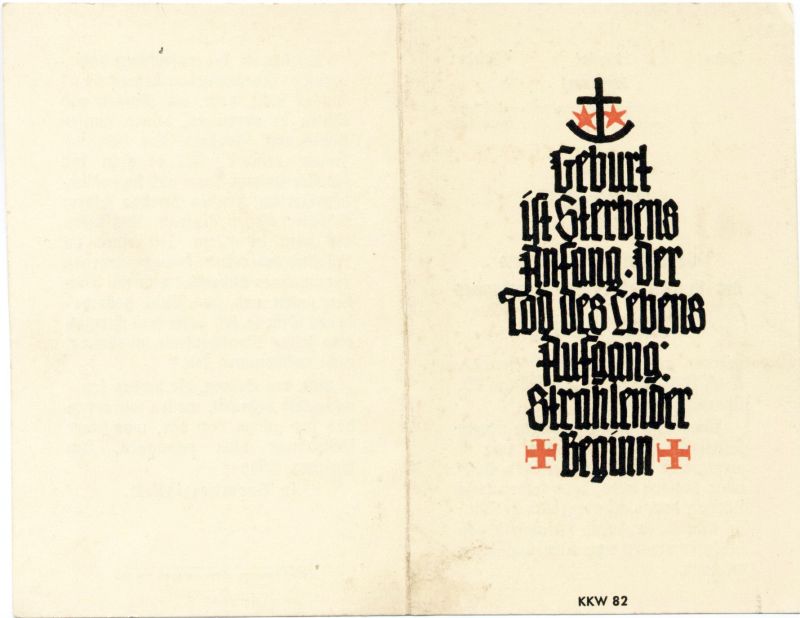 Geburt
ist Sterbens
Anfang · Der
Tod des Lebens
Aufgang:
Strahlender
Beginn
KKW 82